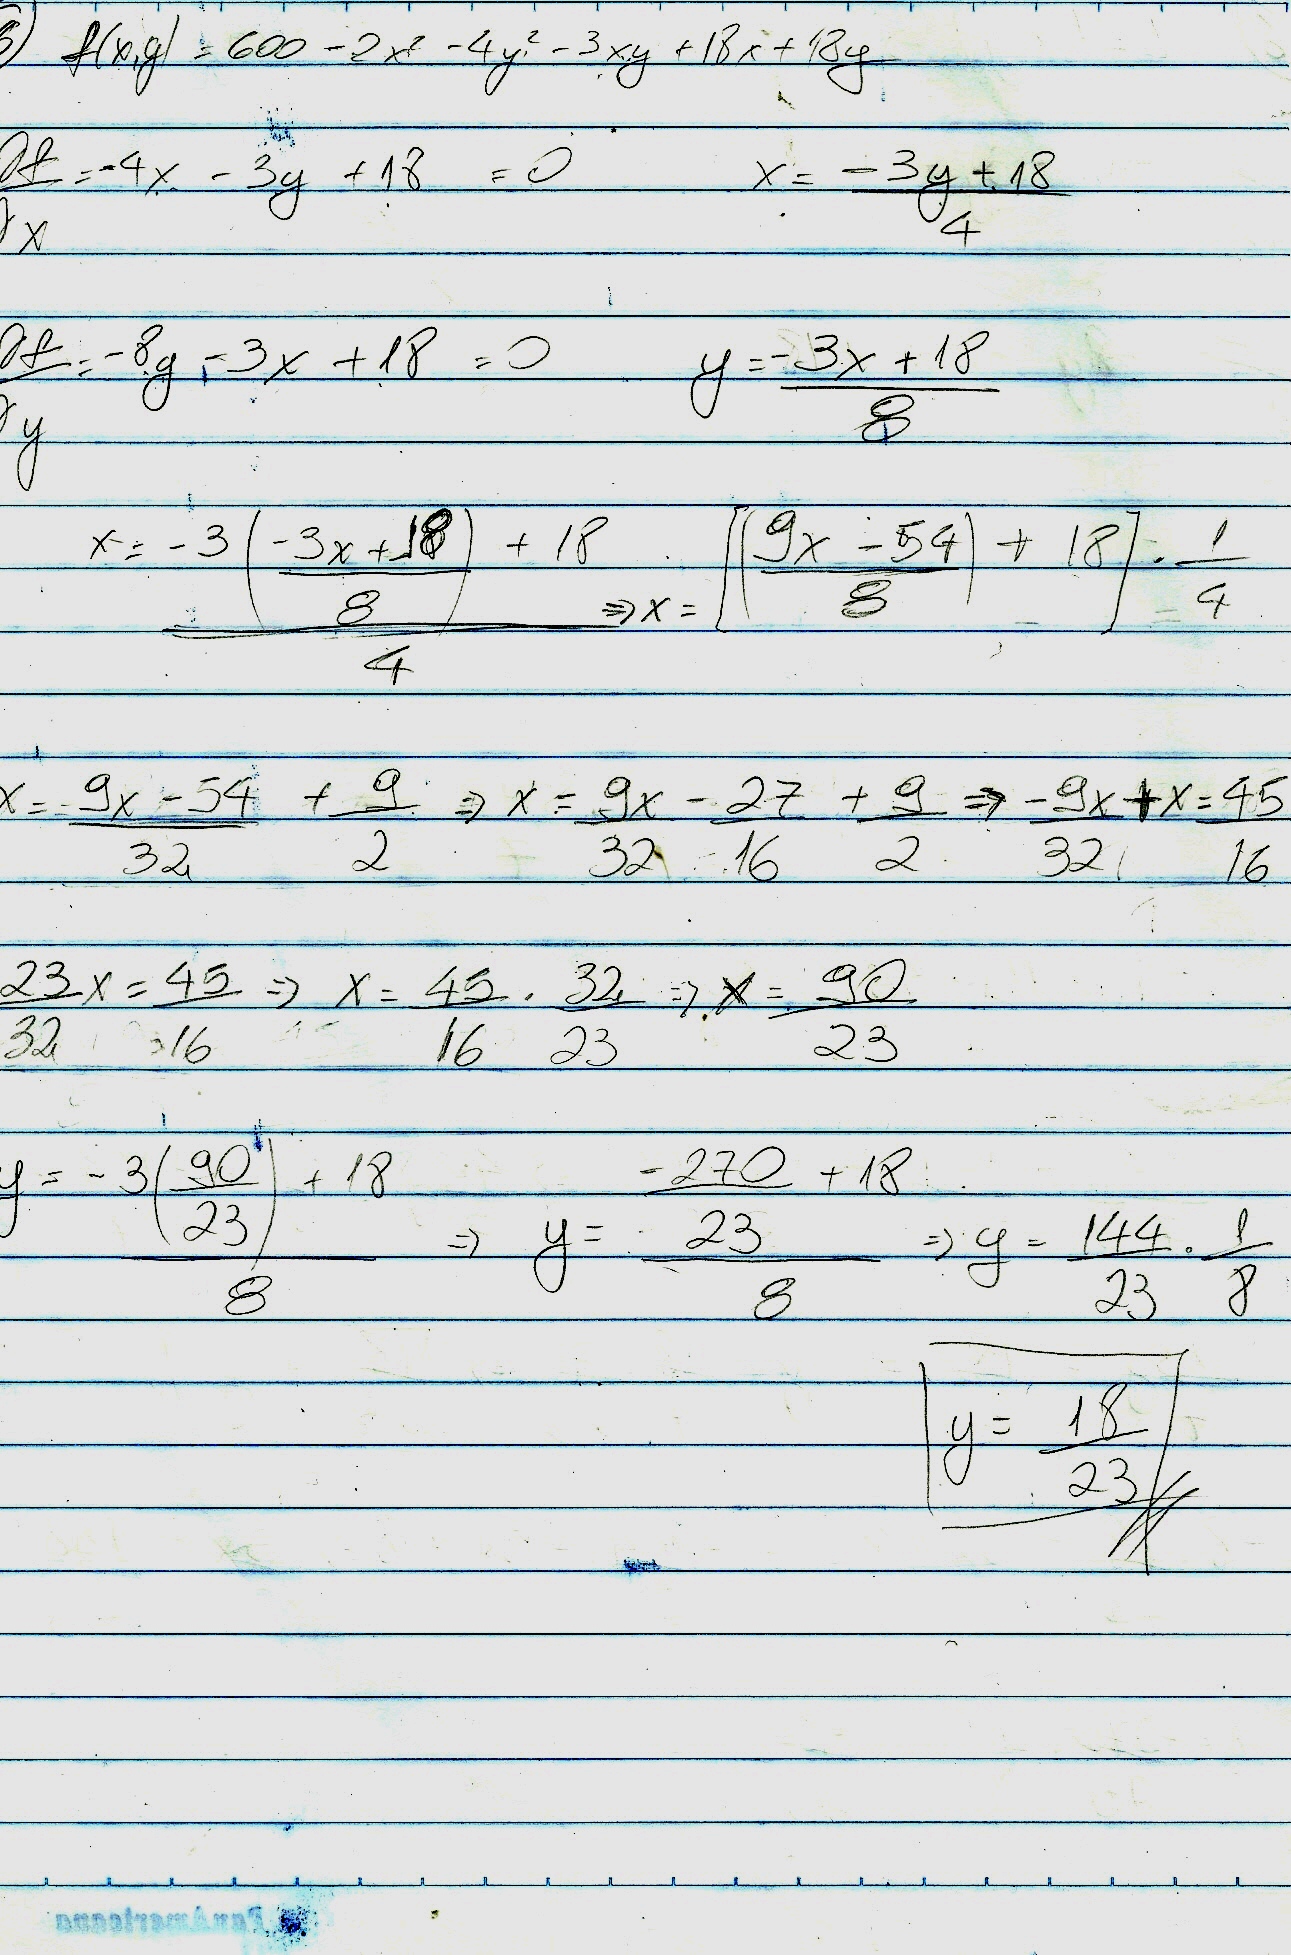 6) f(x,y) = 600 - 2x² - 4y² - 3xy + 18x + 18y
∂f/∂x = -4x - 3y + 18 = 0    x = (-3y + 18)/4
∂f/∂y = -8y - 3x + 18 = 0    y = (-3x + 18)/8
x = (-3((-3x + 18)/8) + 18)/4 ⇒ x = [((9x - 54)/8) + 18] · 1/4
x = (9x - 54)/32 + 9/2 ⇒ x = 9x/32 - 27/16 + 9/2 ⇒ -9x/32 + x = 45/16
23/32 x = 45/16 ⇒ x = 45/16 · 32/23 ⇒ x = 90/23
y = (-3(90/23) + 18)/8 ⇒ y = (-270/23 + 18)/8 ⇒ y = 144/23 · 1/8
y = 18/23
PanAmericana